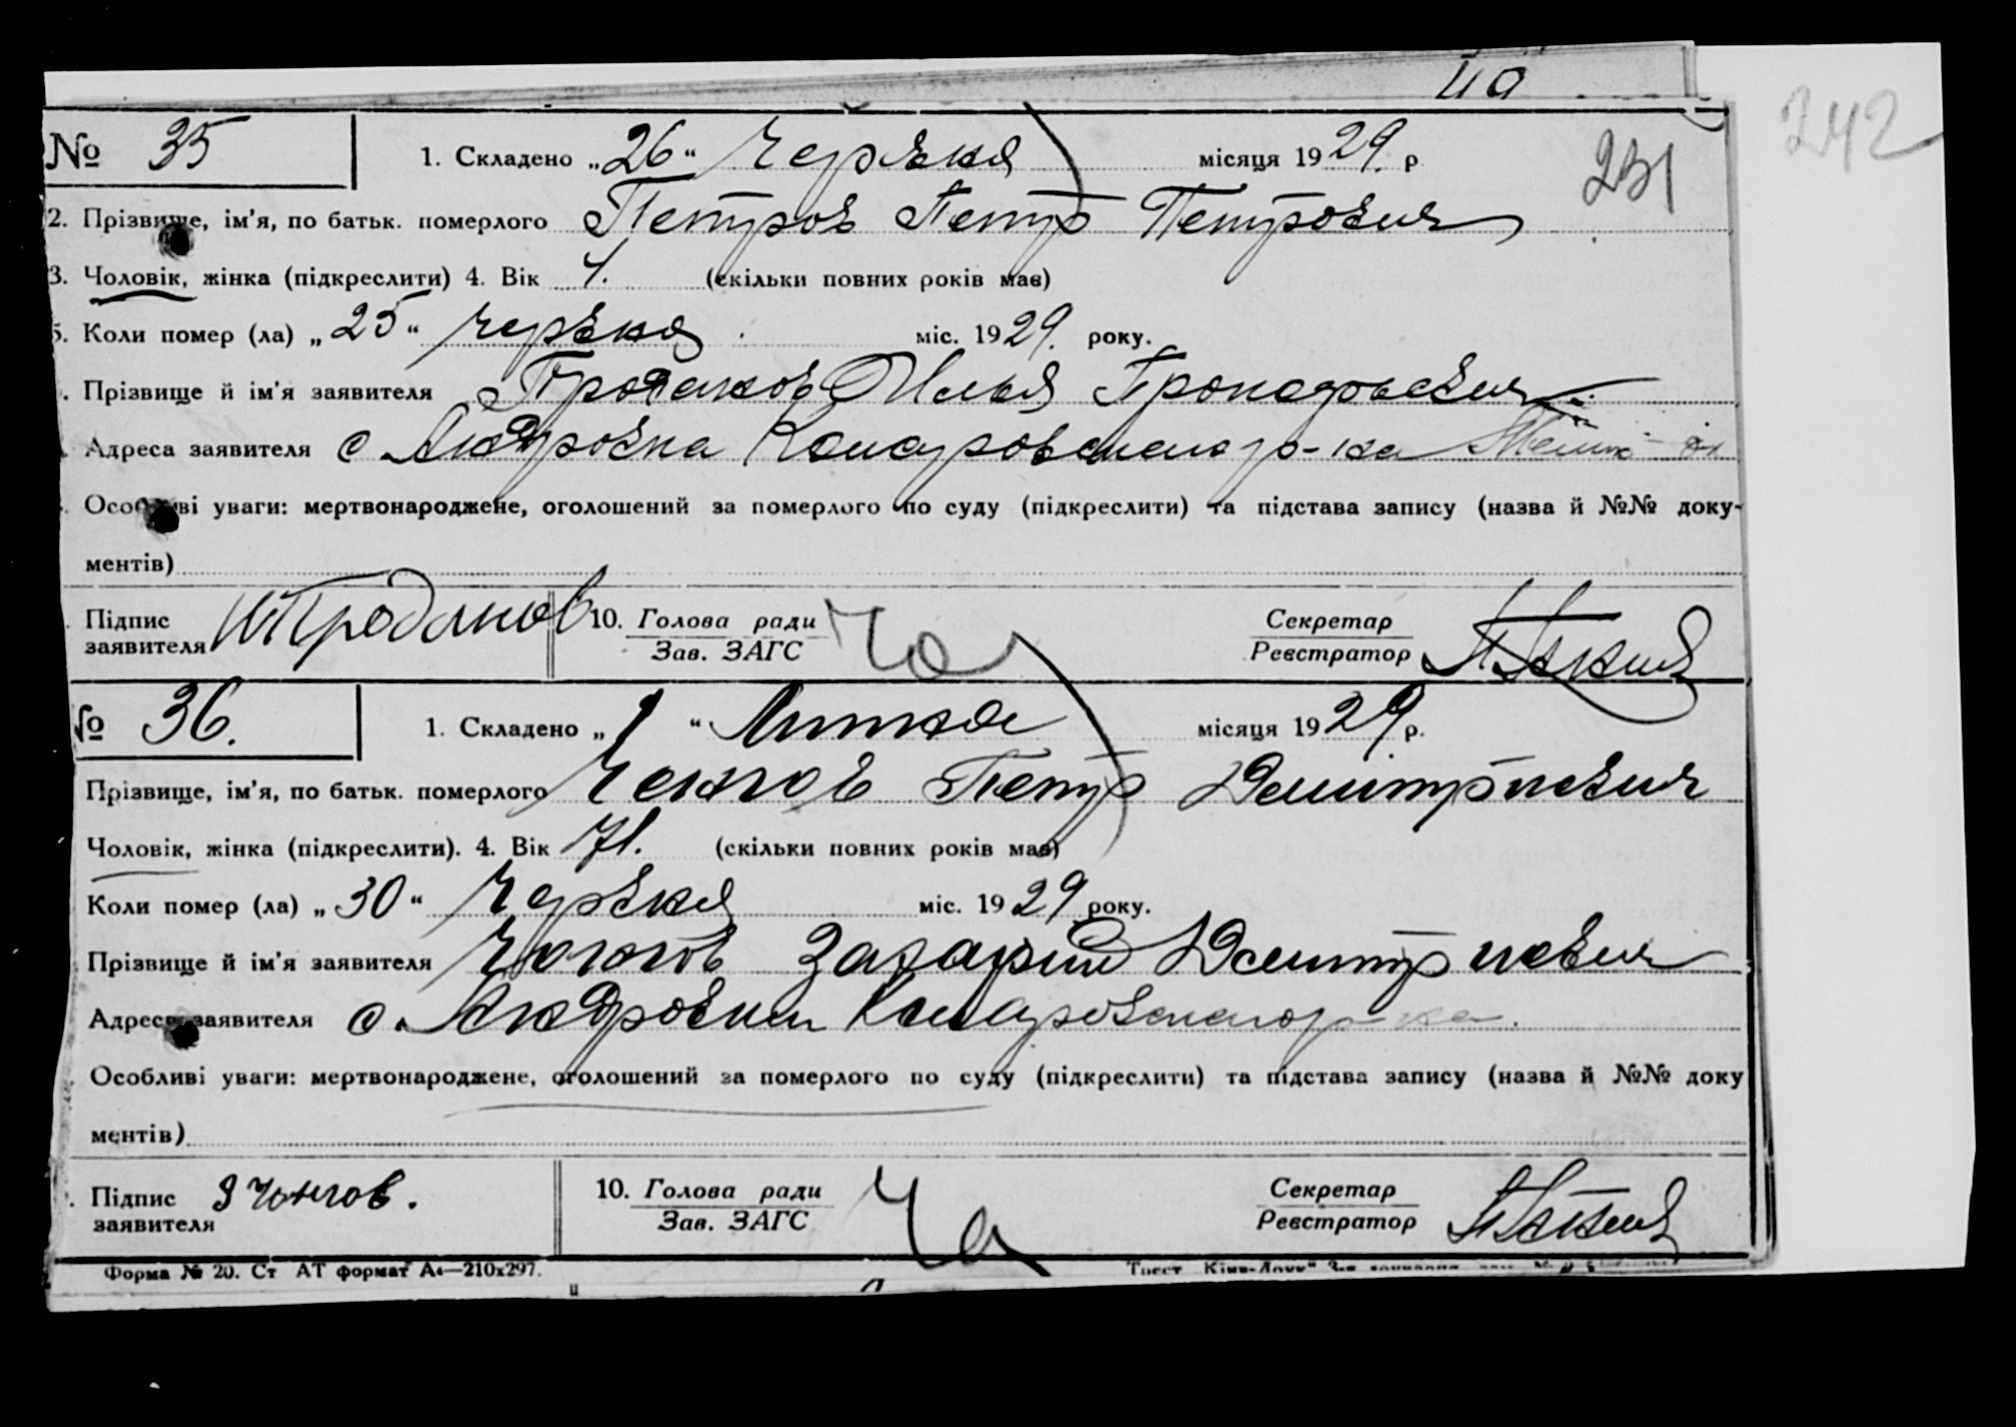 242
№ 35 1. Складено „26“ червня місяця 1929. р.
231
2. Прізвище, ім'я, по батьк. померлого Петров Петр Петрович
3. Чоловік, жінка (підкреслити) 4. Вік (скільки повних років має)
5. Коли помер (ла) „25“ червня міс. 1929. року.
Прізвище й ім'я заявителя Проданов Илья
Адреса заявителя с Андровка р-на
Особливі уваги: мертвонароджене, оголошений за померлого по суду (підкреслити) та підстава запису (назва й №№ доку-
ментів)
Підпис заявителя ИПроданов 10. Голова ради Зав. ЗАГС Секретар Реєстратор
№ 36. 1. Складено „1“ Липня місяця 1929 р.
Прізвище, ім'я, по батьк. померлого Петр Дмитриевич
Чоловік, жінка (підкреслити). 4. Вік (скільки повних років має)
Коли помер (ла) „30“ Червня міс. 1929 року.
Прізвище й ім'я заявителя Захарий Дмитриевич
Адреса заявителя с. Андровки
Особливі уваги: мертвонароджене, оголошений за померлого по суду (підкреслити) та підстава запису (назва й №№ доку
ментів)
Підпис заявителя 10. Голова ради Зав. ЗАГС Секретар Реєстратор
Форма № 20. Ст АТ формат А4—210x297.